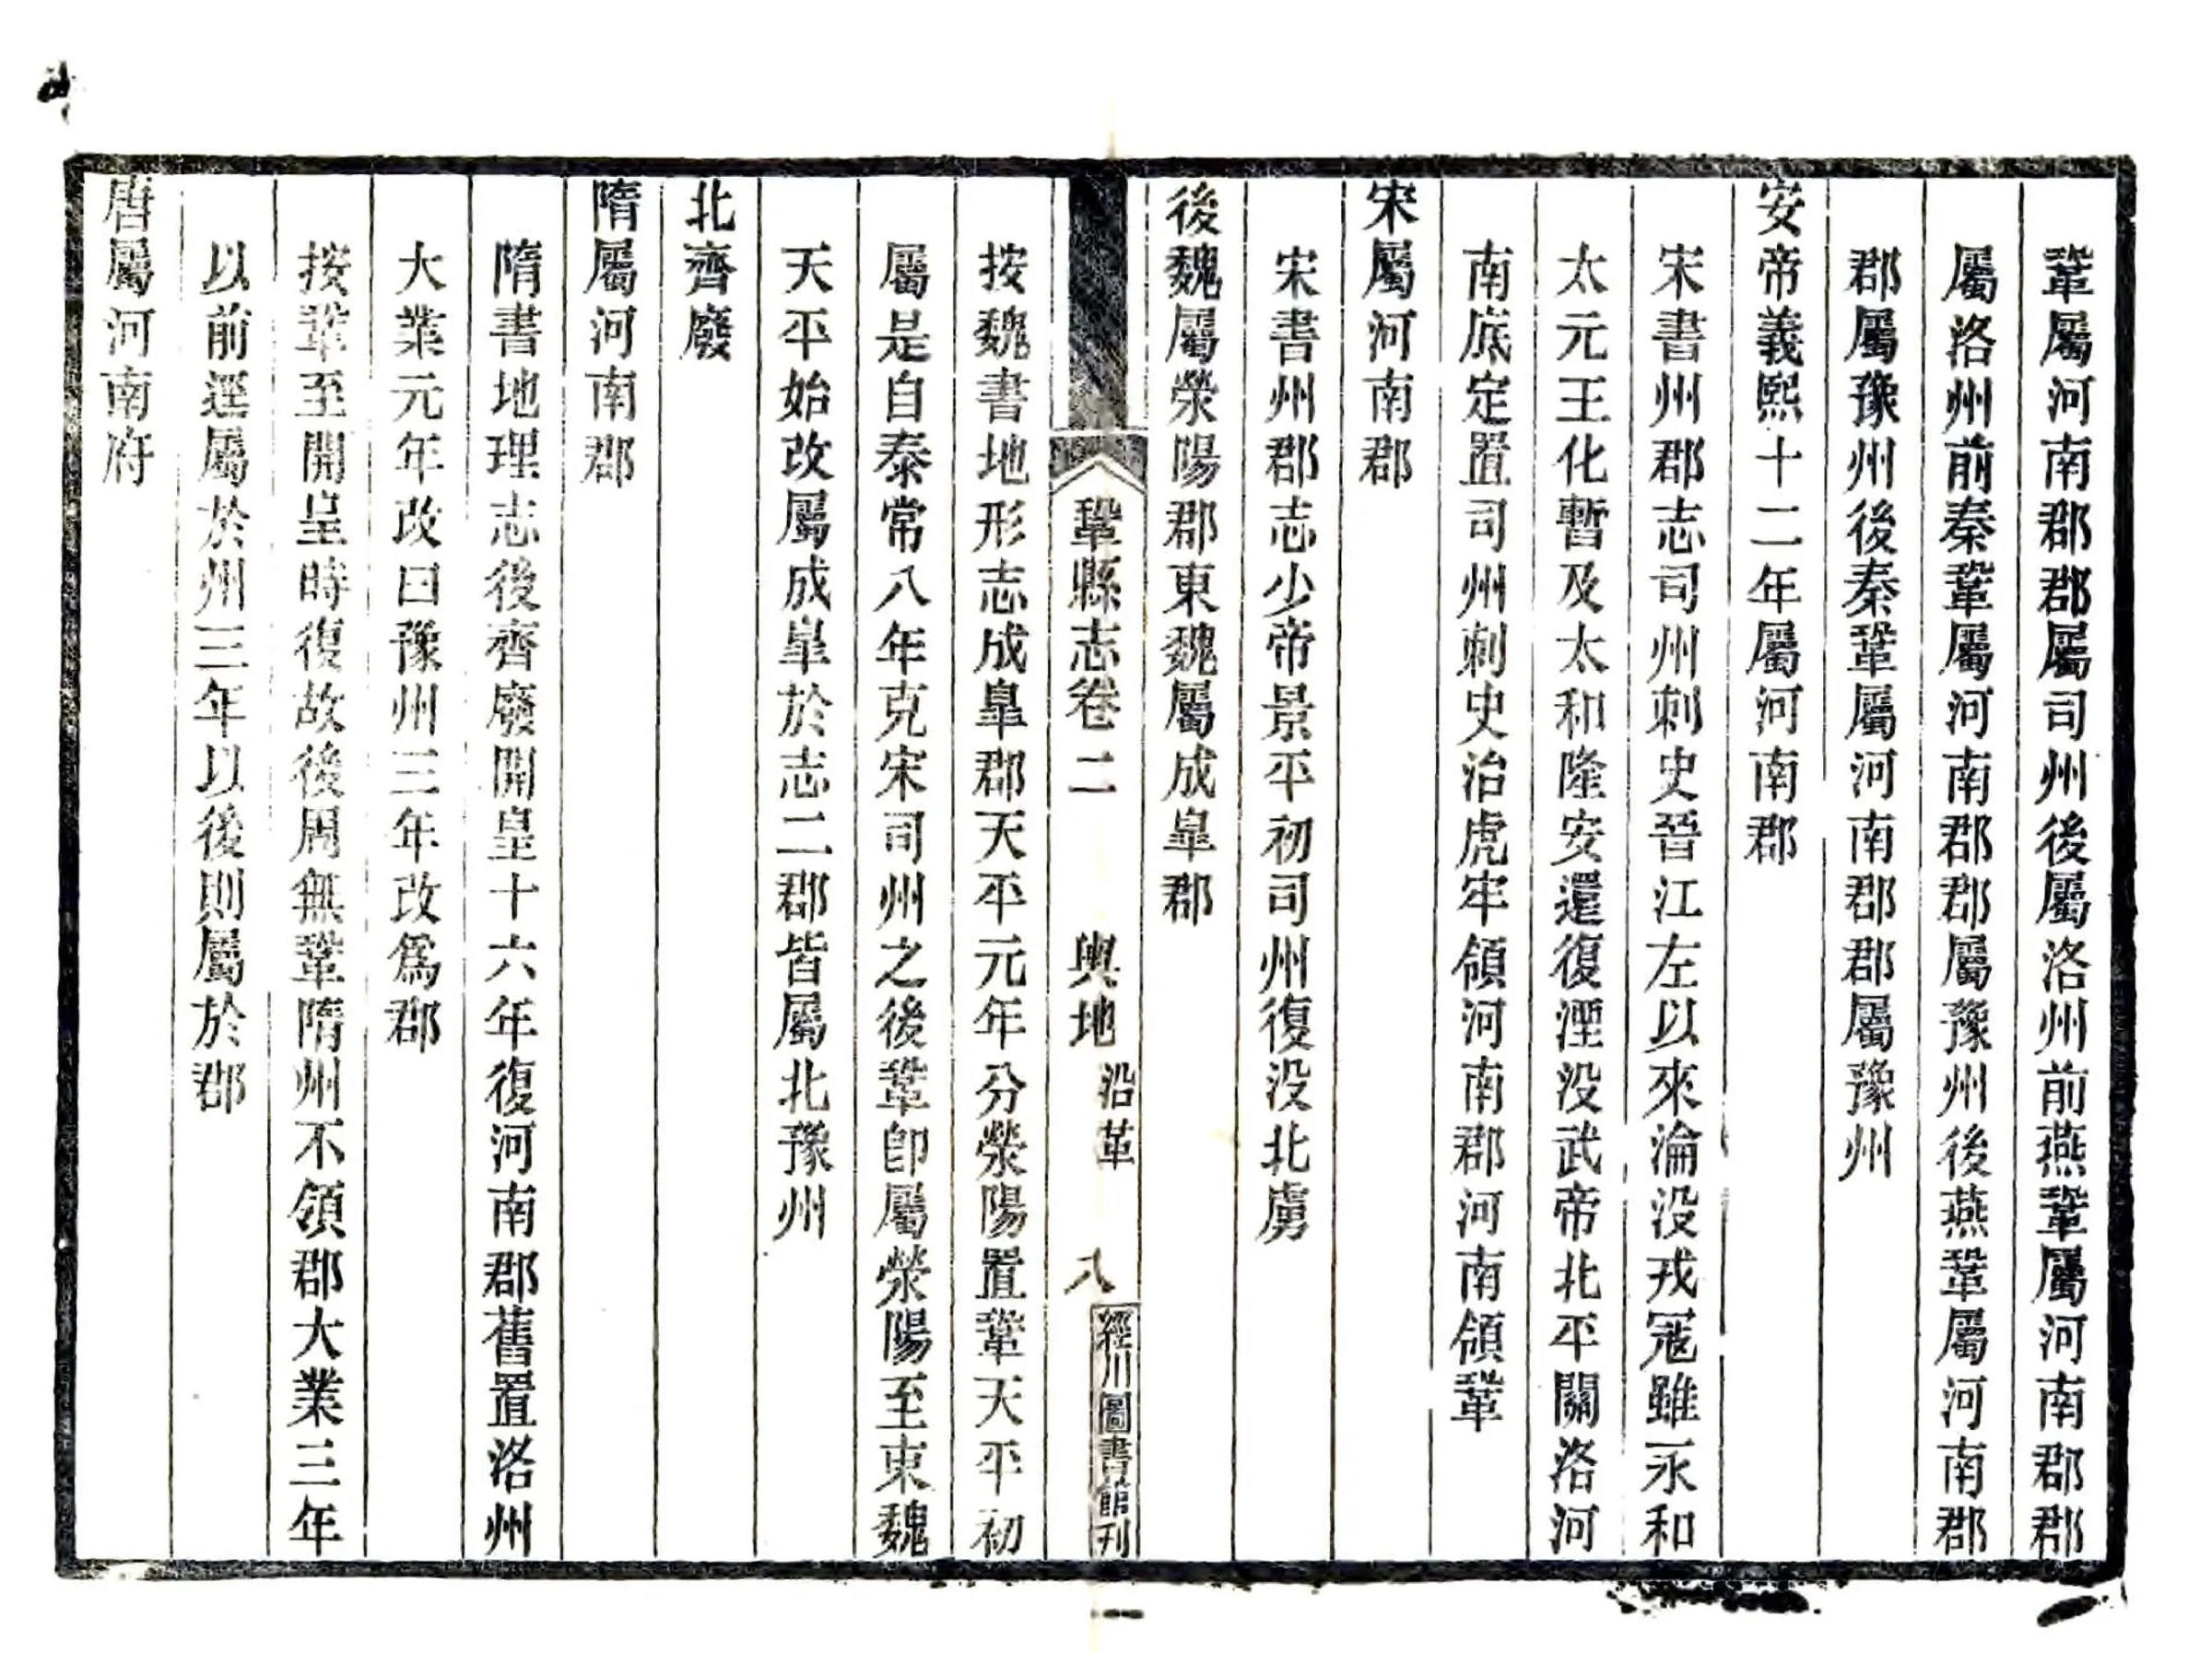 鞏屬河南郡郡屬司州後屬洛州前燕鞏屬河南郡郡
屬洛州前秦鞏屬河南郡郡屬豫州後燕鞏屬河南郡
郡屬豫州後秦鞏屬河南郡郡屬豫州
安帝義熙十二年屬河南郡
宋書州郡志司州刺史晉江左以來淪没戎冦雖永和
太元王化暫及太和隆安還復湮没武帝北平關洛河
南底定置司州刺史治虎牢領河南郡河南領鞏
宋屬河南郡
宋書州郡志少帝景平初司州復没北虜
後魏屬滎陽郡東魏屬成臯郡
鞏縣志卷二 輿地 沿革 八 經川圖書館刊
按魏書地形志成臯郡天平元年分滎陽置鞏天平初
屬是自泰常八年克宋司州之後鞏卽屬滎陽至東魏
天平始改屬成臯於志二郡皆屬北豫州
北齊廢
隋屬河南郡
隋書地理志後齊廢開皇十六年復河南郡舊置洛州
大業元年改曰豫州三年改爲郡
按鞏至開呈時復故後周無鞏隋州不領郡大業三年
以前逕屬於州三年以後則屬於郡
唐屬河南府